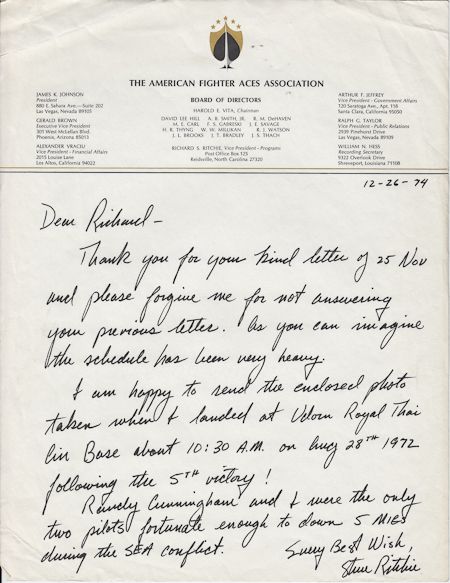 THE AMERICAN FIGHTER ACES ASSOCIATION
JAMES K. JOHNSON
President
880 E. Sahara Ave.—Suite 202
Las Vegas, Nevada 89105
GERALD BROWN
Executive Vice President
301 West McLellan Blvd.
Phoenix, Arizona 85013
ALEXANDER VRACIU
Vice President - Financial Affairs
2015 Louise Lane
Los Altos, California 94022
BOARD OF DIRECTORS
HAROLD E. VITA, Chairman
DAVID LEE HILL A. B. SMITH, JR. B. M. DeHAVEN
M. E. CARL F. S. GABRESKI J. E. SAVAGE
H. R. THYNG W. W. MILLIKAN R. J. WATSON
J. L. BROOKS J. T. BRADLEY J. S. THACH
RICHARD S. RITCHIE, Vice President - Programs
Post Office Box 125
Reidsville, North Carolina 27320
ARTHUR F. JEFFREY
Vice President - Government Affairs
120 Saratoga Ave., Apt. 158
Santa Clara, California 95050
RALPH G. TAYLOR
Vice President - Public Relations
2939 Pinehurst Drive
Las Vegas, Nevada 89109
WILLIAM N. HESS
Recording Secretary
9322 Overlook Drive
Shreveport, Louisiana 71108
12-26-74
Dear Richard -
Thank you for your kind letter of 25 Nov
and please forgive me for not answering
your previous letter. As you can imagine
the schedule has been very heavy.
I am happy to send the enclosed photo
taken when I landed at Udorn Royal Thai
Air Base about 10:30 A.M. on Aug 28TH 1972
following the 5TH victory!
Randy Cunningham and I were the only
two pilots fortunate enough to down 5 MIGs
during the SEA conflict.
Every Best Wish,
Steve Ritchie